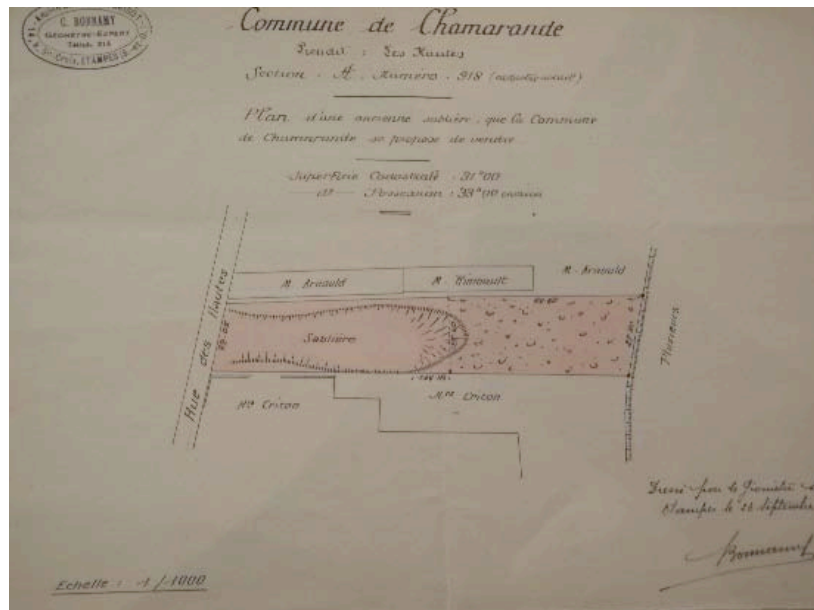 C. BONNAMY
GÉOMÈTRE-EXPERT
ÉTAMPES (S.-et-O.)
Commune de Chamarande
Lieudit : Les Hautes
Section : A Numéro : 918
Plan d'une ancienne sablière, que la Commune
de Chamarande se propose de vendre
Superficie Cadastrale : 31ª00
do Possession : 33ª00 environ
Rue des Hautes
M. Arnauld
M. Arnauld
Sablière
Plusieurs
Mme Criton
Mme Criton
Dressé par le Géomètre
Étampes le 28 Septembre
Bonnamy
Echelle : 1/1000